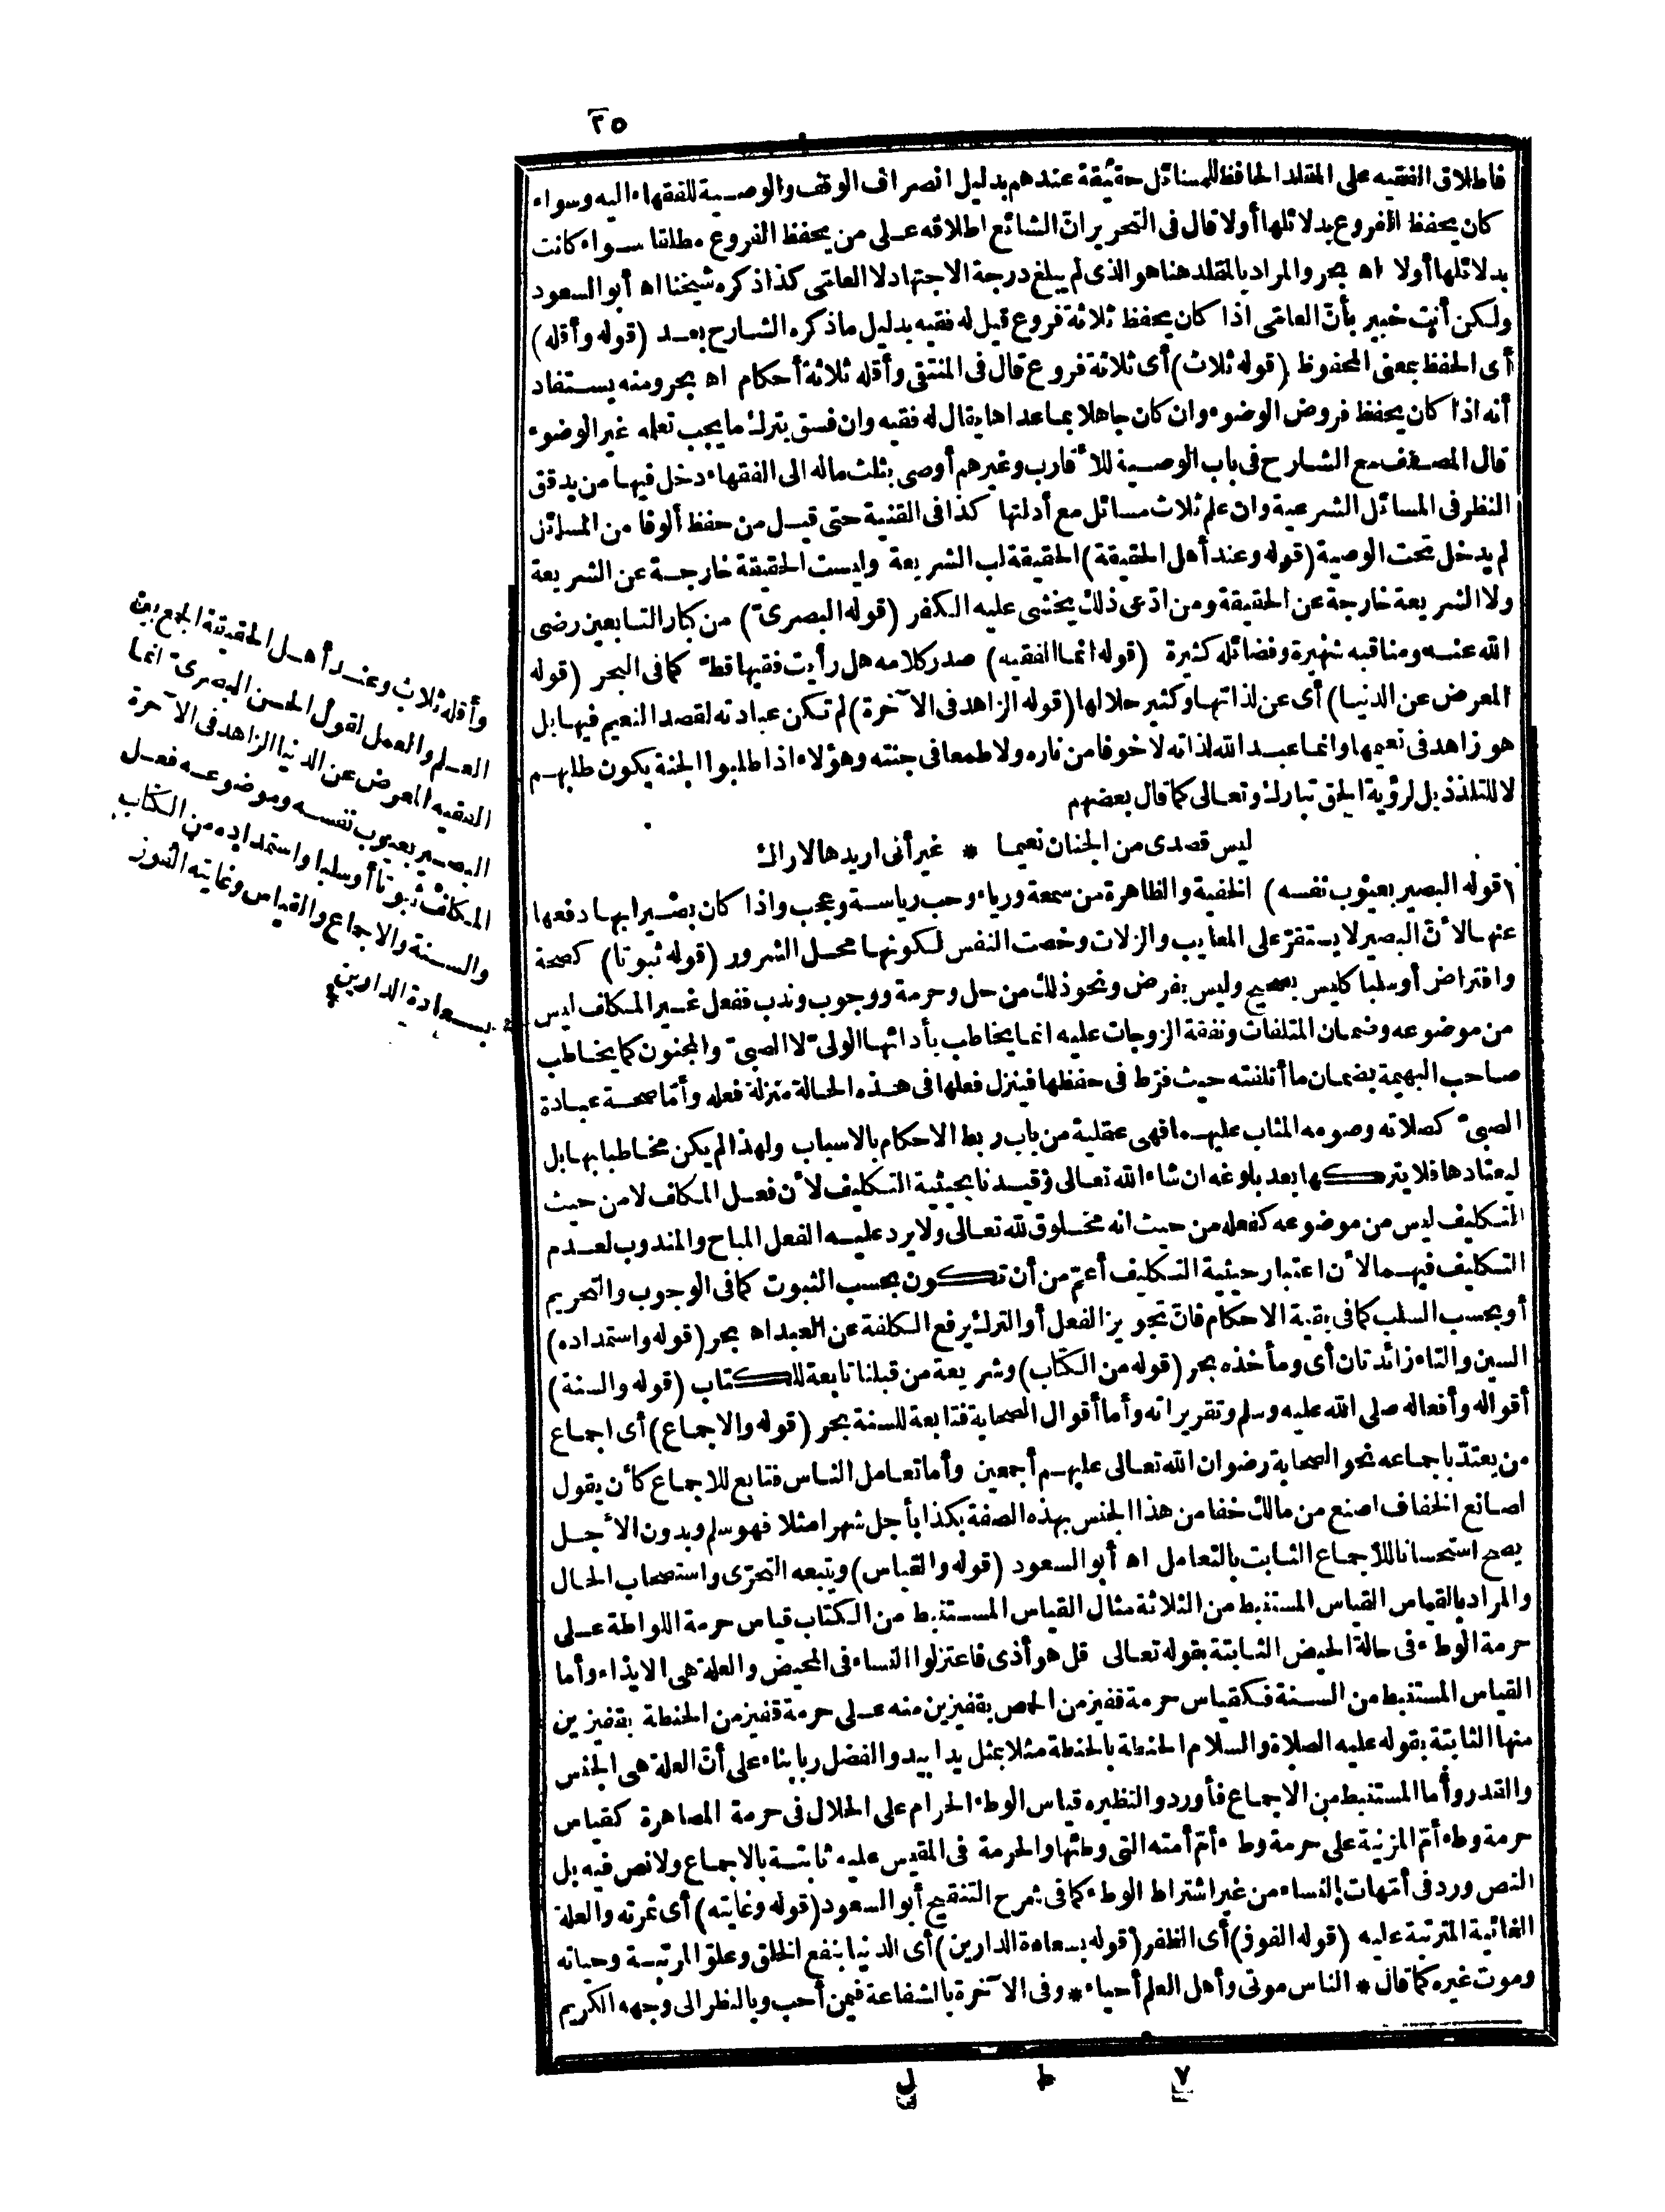 ٢٥
فاطلاق الفقيه على المقلد الحافظ للمسائل حقيقة عندهم بدليل انصراف الوقف والوصية للفقهاء اليه وسواء
كان يحفظ الفروع بدلائلها أولا قال فى التحرير انّ الشائع اطلاقه على من يحفظ الفروع مطلقا سواء كانت
بدلائلها أولا اه بحر والمراد بالمقلد هنا هو الذى لم يبلغ درجة الاجتهاد لا العامّى كذا ذكره شيخنا اه أبو السعود
ولكن أنت خبير بأنّ العامّى اذا كان يحفظ ثلاثة فروع قيل له فقيه بدليل ماذكره الشارح بعد (قوله وأقله)
أى الحفظ بمعنى المحفوظ (قوله ثلاث) أى ثلاثة فروع قال فى المنتقى وأقله ثلاثة أحكام اه بحر ومنه يستفاد
أنه اذا كان يحفظ فروض الوضوء وان كان جاهلا بماعداها يقال له فقيه وان فسق بترك مايجب تعلمه غير الوضوء
قال المصنف مع الشارح فى باب الوصية للأقارب وغيرهم أوصى بثلث ماله الى الفقهاء دخل فيها من يدقق
النظر فى المسائل الشرعية وان علم ثلاث مسائل مع أدلتها كذا فى القنية حتى قيل من حفظ ألوفا من المسائل
لم يدخل تحت الوصية (قوله وعند أهل الحقيقة) الحقيقة لب الشريعة وليست الحقيقة خارجة عن الشريعة
ولا الشريعة خارجة عن الحقيقة ومن ادّعى ذلك يخشى عليه الكفر (قوله البصرىّ) من كبار التابعين رضى
الله عنه ومناقبه شهيرة وفضائله كثيرة (قوله انما الفقيه) صدر كلامه هل رأيت فقيها قطّ كما فى البحر (قوله
المعرض عن الدنيا) أى عن لذاتها وكثير حلالها (قوله الزاهد فى الآخرة) لم تكن عبادته لقصد النعيم فيها بل
هو زاهد فى نعيمها وانما عبد الله لذاته لا خوفا من ناره ولا طمعا فى جنته وهؤلاء اذا طلبوا الجنة يكون طلبهم
لا للتلذذ بل لرؤية الحق تبارك وتعالى كما قال بعضهم
ليس قصدى من الجنان نعيما * غير أنى اريدها لاراك
(قوله البصير بعيوب نفسه) الخفية والظاهرة من سمعة ورياء وحب رياسة وعجب واذا كان بصيرا بها دفعها
عنها لأنّ البصير لا يستقرّ على المعايب والزلات وخصت النفس لكونها محل الشرور (قوله ثبوتا) كصحة
وافتراض أو سلبا كليس بصحيح وليس بفرض ونحو ذلك من حل وحرمة ووجوب وندب ففعل غير المكلف ليس
من موضوعه وضمان المتلفات ونفقة الزوجات عليه انما يخاطب بأدائها الولىّ لا الصبىّ والمجنون كما يخاطب
صاحب البهيمة بضمان ما أتلفته حيث فرّط فى حفظها فينزل فعلها فى هذه الحالة منزلة فعله وأمّا صحة عبادة
الصبىّ كصلاته وصومه المثاب عليها فهى عقلية من باب ربط الاحكام بالاسباب ولهذا لم يكن مخاطبا بها بل
ليعتادها فلا يتركها بعد بلوغه ان شاء الله تعالى وقيدنا بحيثية التكليف لأن فعل المكلف لا من حيث
التكليف ليس من موضوعه كفعله من حيث انه مخلوق لله تعالى ولا يرد عليه الفعل المباح والمندوب لعدم
التكليف فيهما لأن اعتبار حيثية التكليف أعمّ من أن تكون بحسب الثبوت كما فى الوجوب والتحريم
أو بحسب السلب كما فى بقية الاحكام فانّ تجويز الفعل أو الترك يرفع الكلفة عن العبد اه بحر (قوله واستمداده)
السين والتاء زائدتان أى ومأخذه بحر (قوله من الكتاب) وشريعة من قبلنا تابعة للكتاب (قوله والسنة)
أقواله وأفعاله صلى الله عليه وسلم وتقريراته وأما أقوال الصحابة فتابعة للسنة بحر (قوله والاجماع) أى اجماع
من يعتدّ باجماعه نحو الصحابة رضوان الله تعالى عليهم أجمعين وأما تعامل الناس فتابع للاجماع كأن يقول
لصانع الخفاف اصنع من مالك خفا من هذا الجنس بهذه الصفة بكذا بأجل شهرا مثلا فهو سلم وبدون الأجل
يصح استحسانا للاجماع الثابت بالتعامل اه أبو السعود (قوله والقياس) ويتبعه التحرّى واستصحاب الحال
والمراد بالقياس القياس المستنبط من الثلاثة مثال القياس المستنبط من الكتاب قياس حرمة اللواطة على
حرمة الوطء فى حالة الحيض الثابتة بقوله تعالى قل هو أذى فاعتزلوا النساء فى المحيض والعلة هى الايذاء وأما
القياس المستنبط من السنة فكقياس حرمة قفيز من الجص بقفيزين منه على حرمة قفيز من الحنطة بقفيزين
منها الثابتة بقوله عليه الصلاة والسلام الحنطة بالحنطة مثلا بمثل يدا بيد والفضل ربا بناء على أنّ العلة هى الجنس
والقدر وأما المستنبط من الاجماع فأوردوا لنظيره قياس الوطء الحرام على الحلال فى حرمة المصاهرة كقياس
حرمة وطء أمّ المزنية على حرمة وطء أمّ أمته التى وطئها والحرمة فى المقيس عليه ثابتة بالاجماع ولا نص فيه بل
النص ورد فى أمّهات النساء من غير اشتراط الوطء كما فى شرح التنقيح أبو السعود (قوله وغايته) أى ثمرته والعلة
الغائية المترتبة عليه (قوله الفوز) أى الظفر (قوله بسعادة الدارين) أى الدنيا بنفع الخلق وعلوّ المرتبة وحياته
وموت غيره كما قال * الناس موتى وأهل العلم أحياء * وفى الآخرة بالشفاعة فيمن أحب وبالنظر الى وجهه الكريم
وأقله ثلاث وعند أهل الحقيقة الجمع بين
العلم والعمل لقول الحسن البصرىّ انما
الفقيه المعرض عن الدنيا الزاهد فى الآخرة
البصير بعيوب نفسه وموضوعه فعل
المكلف ثبوتا أو سلبا واستمداده من الكتاب
والسنة والاجماع والقياس وغايته الفوز
بسعادة الدارين
٧ ط ل